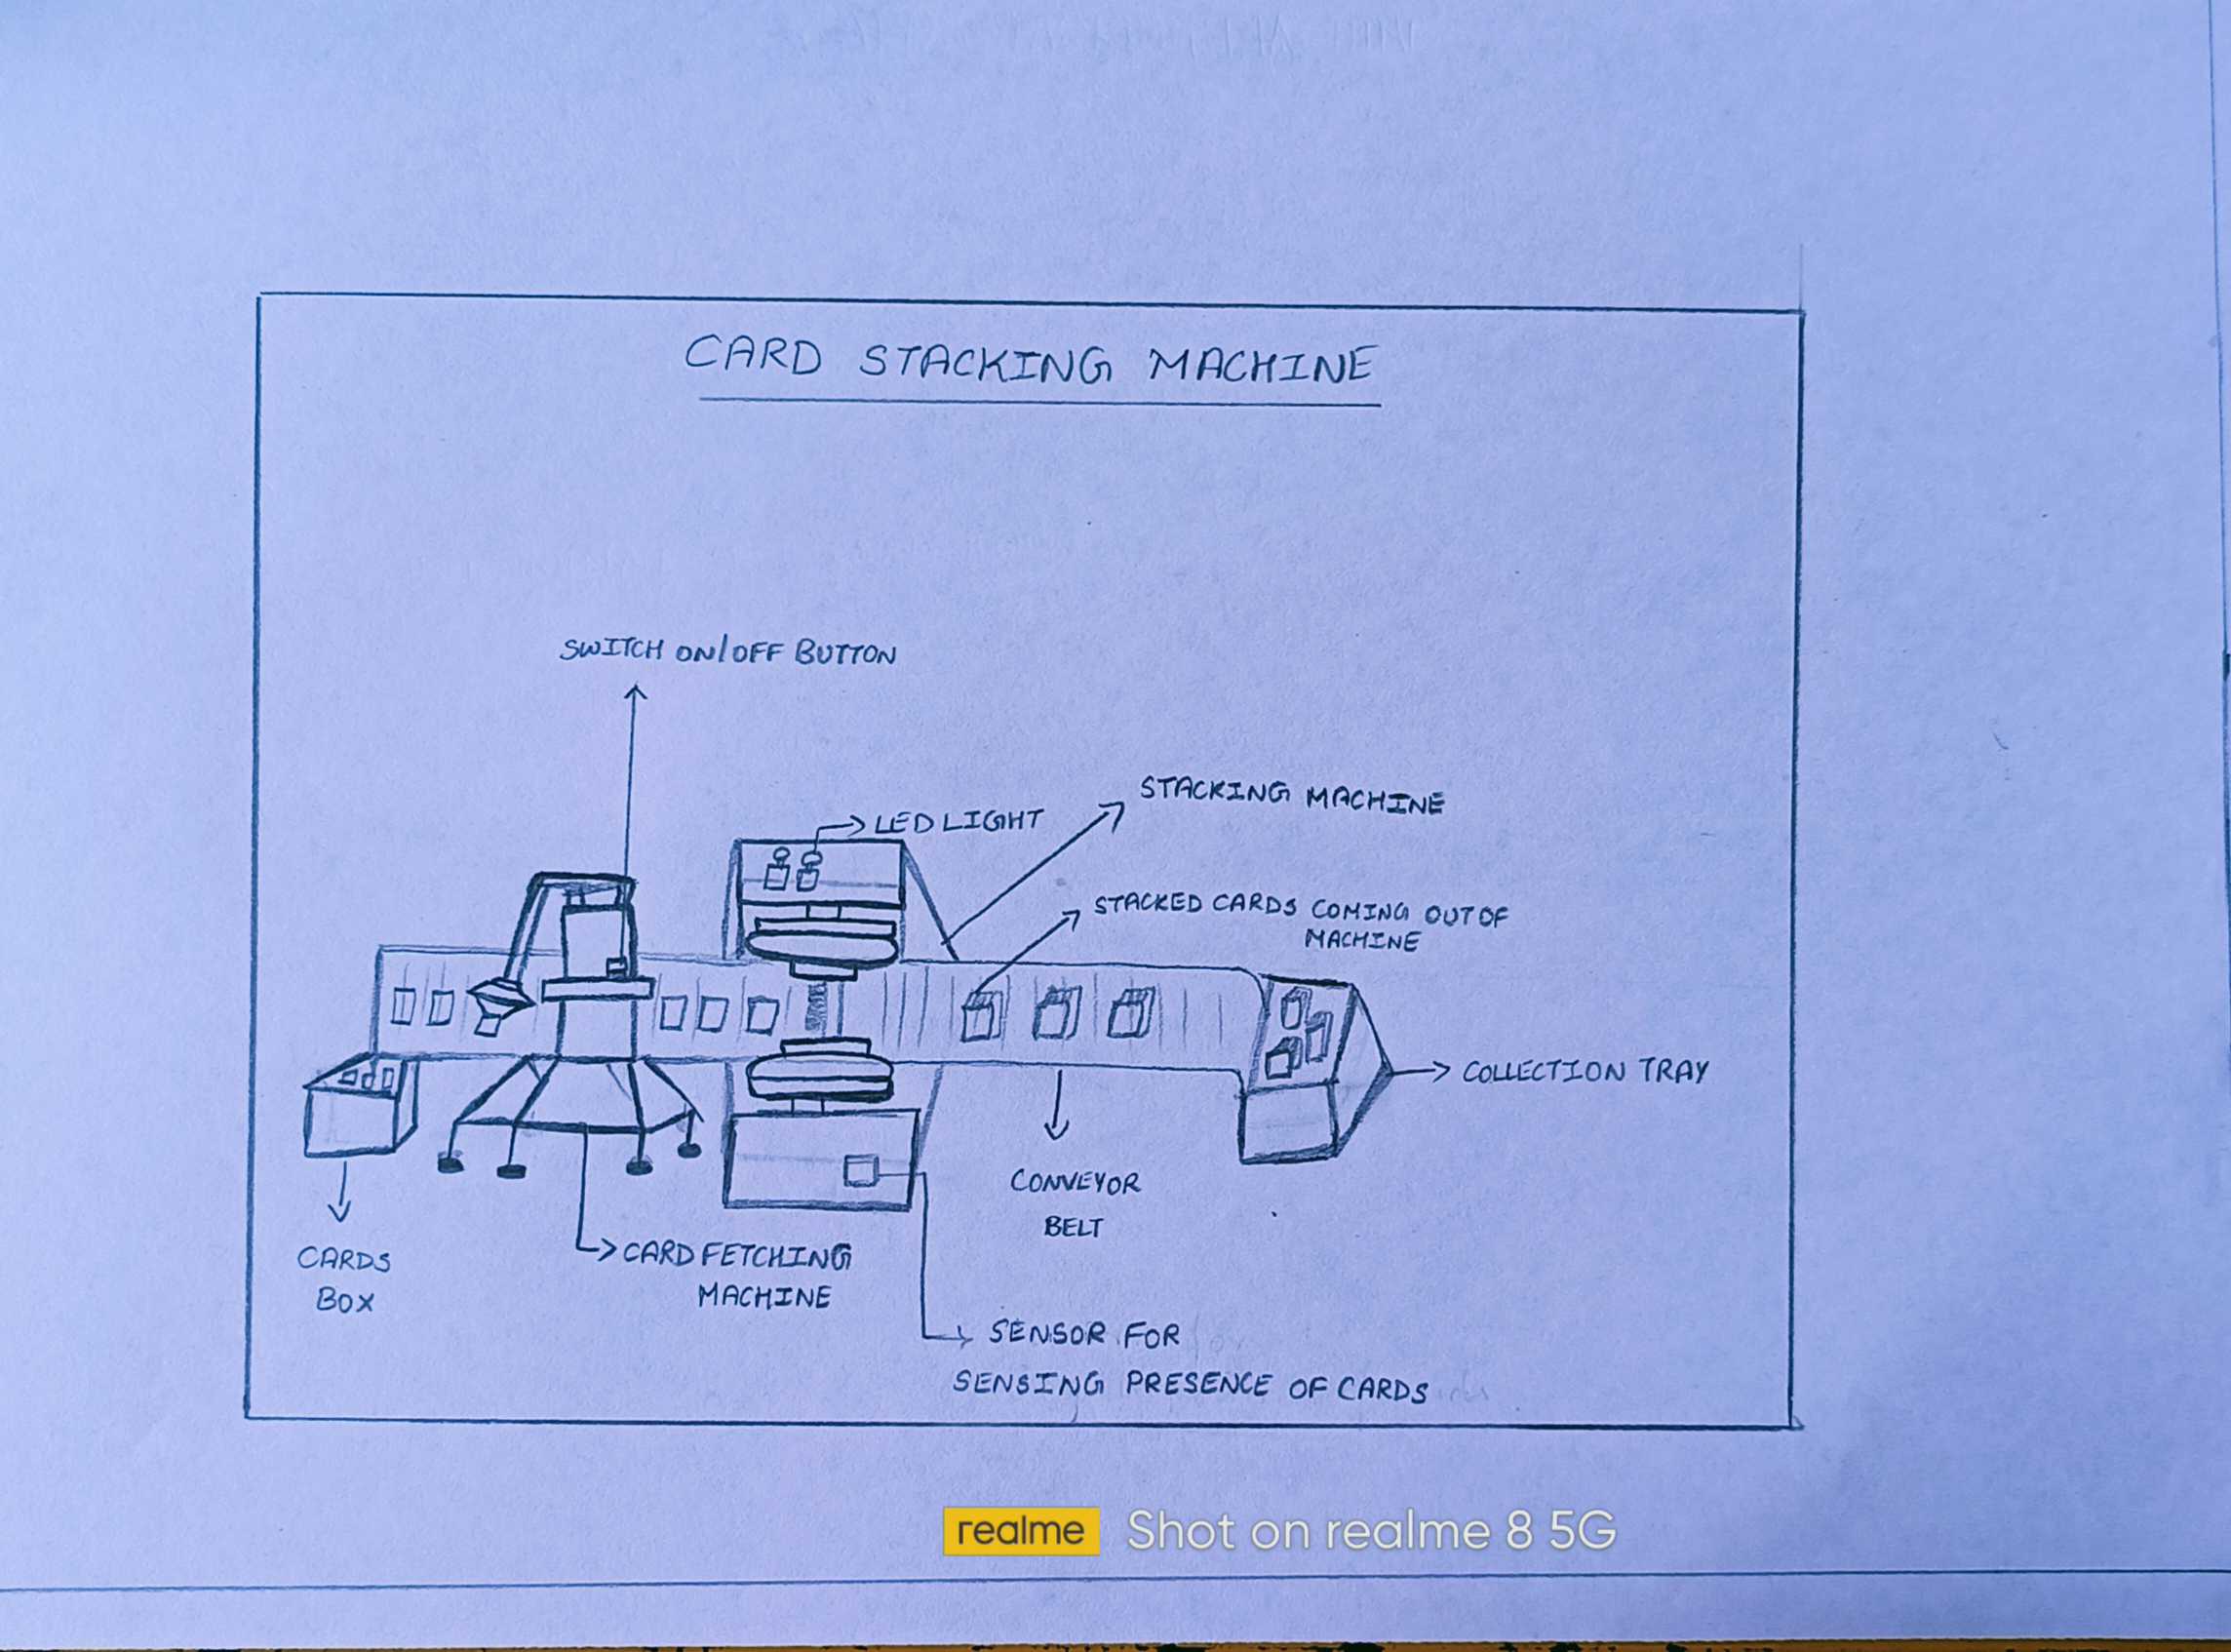 CARD STACKING MACHINE
SWITCH ON/OFF BUTTON
STACKING MACHINE
LED LIGHT
STACKED CARDS COMING OUT OF
MACHINE
COLLECTION TRAY
CONVEYOR
BELT
CARDS
BOX
CARD FETCHING
MACHINE
SENSOR FOR
SENSING PRESENCE OF CARDS
realme Shot on realme 8 5G